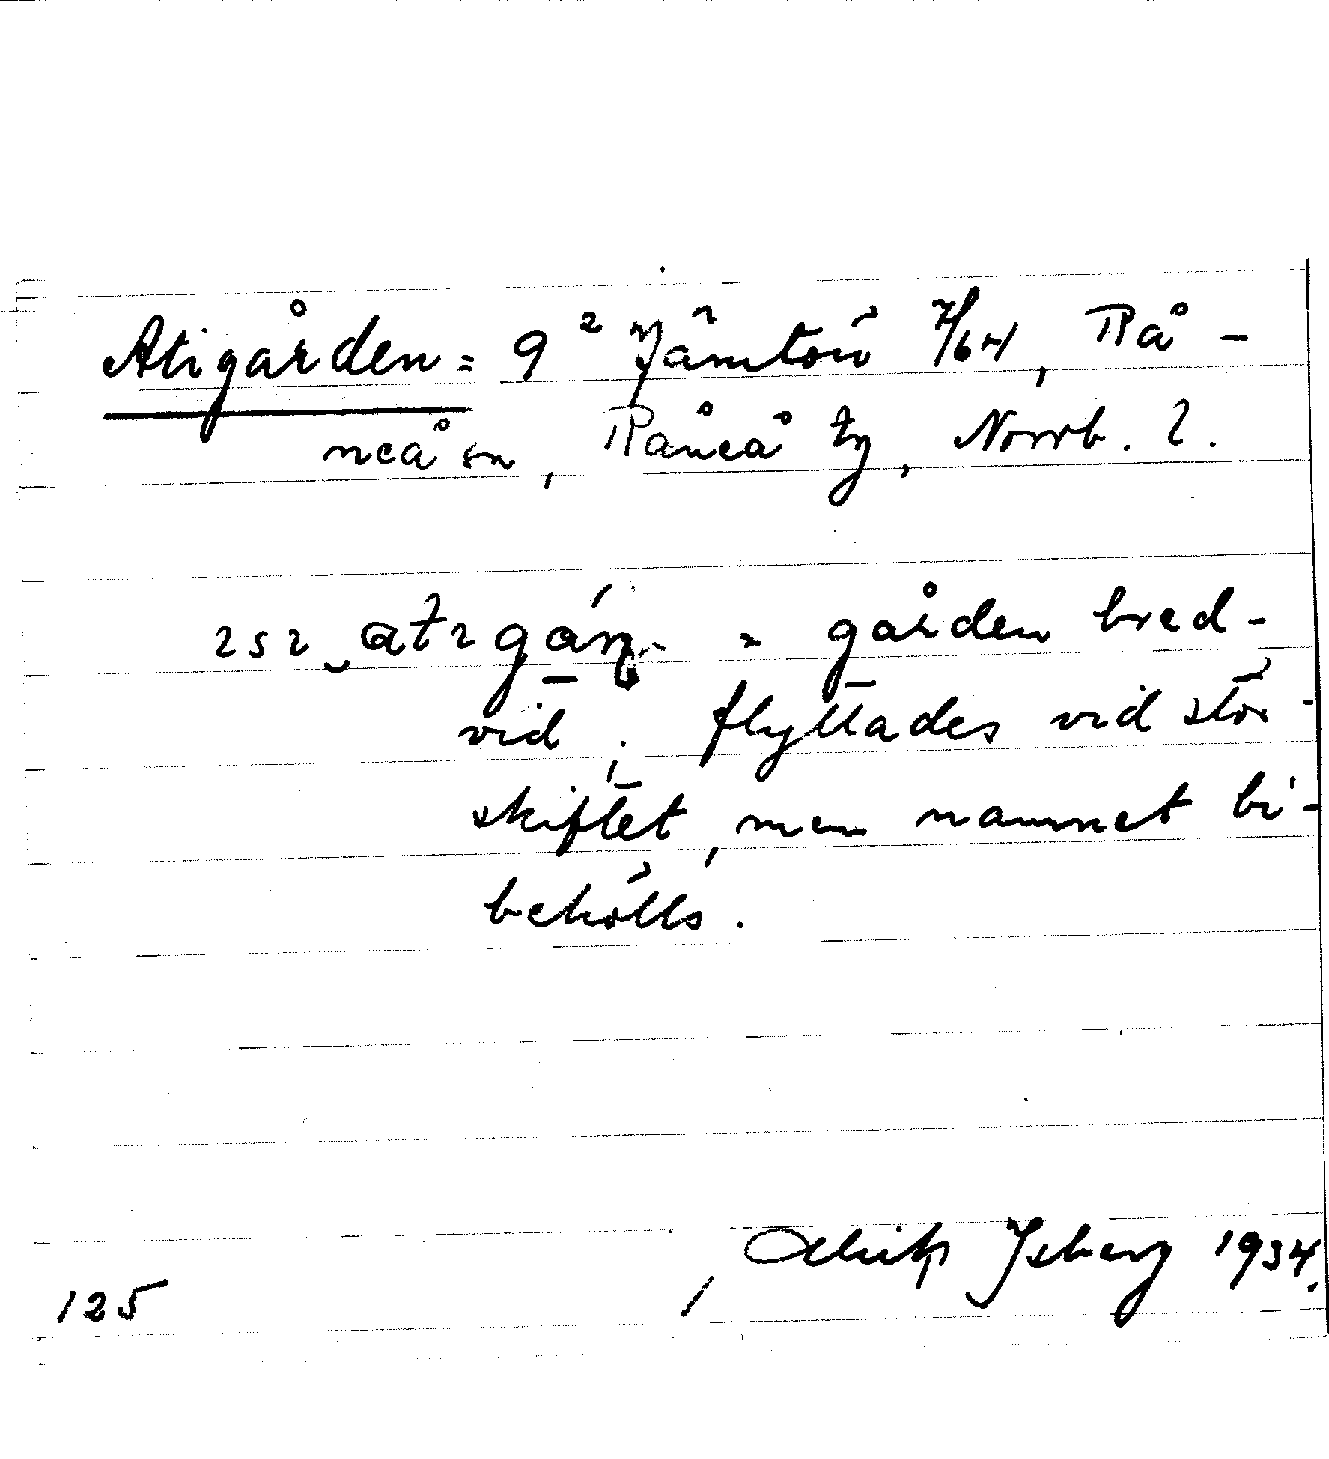 Atigården = 9² Jämtön 7/64, Rå-
neå sn, Råneå tg, Norrb. l.
ısı atıgán = gården bred-
vid; flyttades vid stor-
skiftet, men namnet bi-
behölls.
Isberg 1934.
125